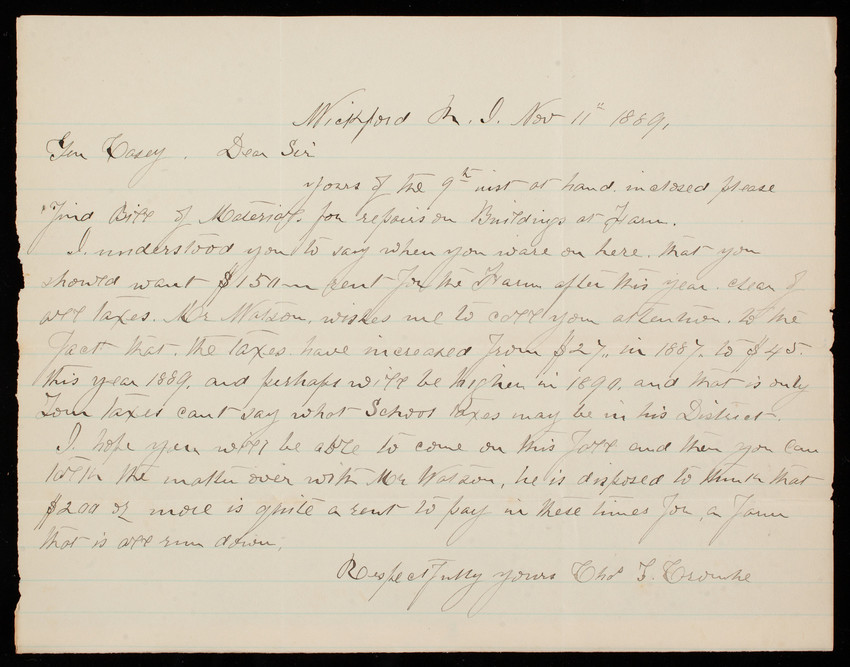 Wickford R. I. Nov 11th 1889,
Gen Casey. Dear Sir
yours of the 9th inst at hand. inclosed please
find Bill of Material. for repairs on Buildings at Farm.
I. understood you to say when you ware on here. that you
should want $150 rent for the Farm after this year. clear of
all taxes. Mr Watson, wishes me to call your attention. to the
Fact that. the taxes. have increased from $27,, in 1887, to $45.
this year 1889, and perhaps will be higher in 1890, and that is only
Town taxes cant say what School taxes may be in his District.
I. hope you will be able to come on this fall and then you can
talk the matter over with Mr Watson, he is disposed to think that
$200 or more is quite a rent to pay in these times for, a Farm
that is all run down,
Respectfully yours Thos